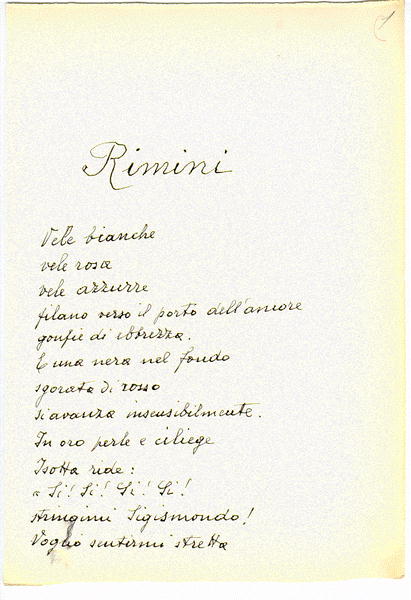 1
Rimini
Vele bianche
vele rosa
vele azzurre
filano verso il porto dell'amore
gonfie di ebbrezza.
E una nera nel fondo
sgorata di rosso
si avanza insensibilmente.
In oro perle e ciliege
Isotta ride:
« Sì! Sì! Sì! Sì!
stringimi Sigismondo!
Voglio sentirmi stretta